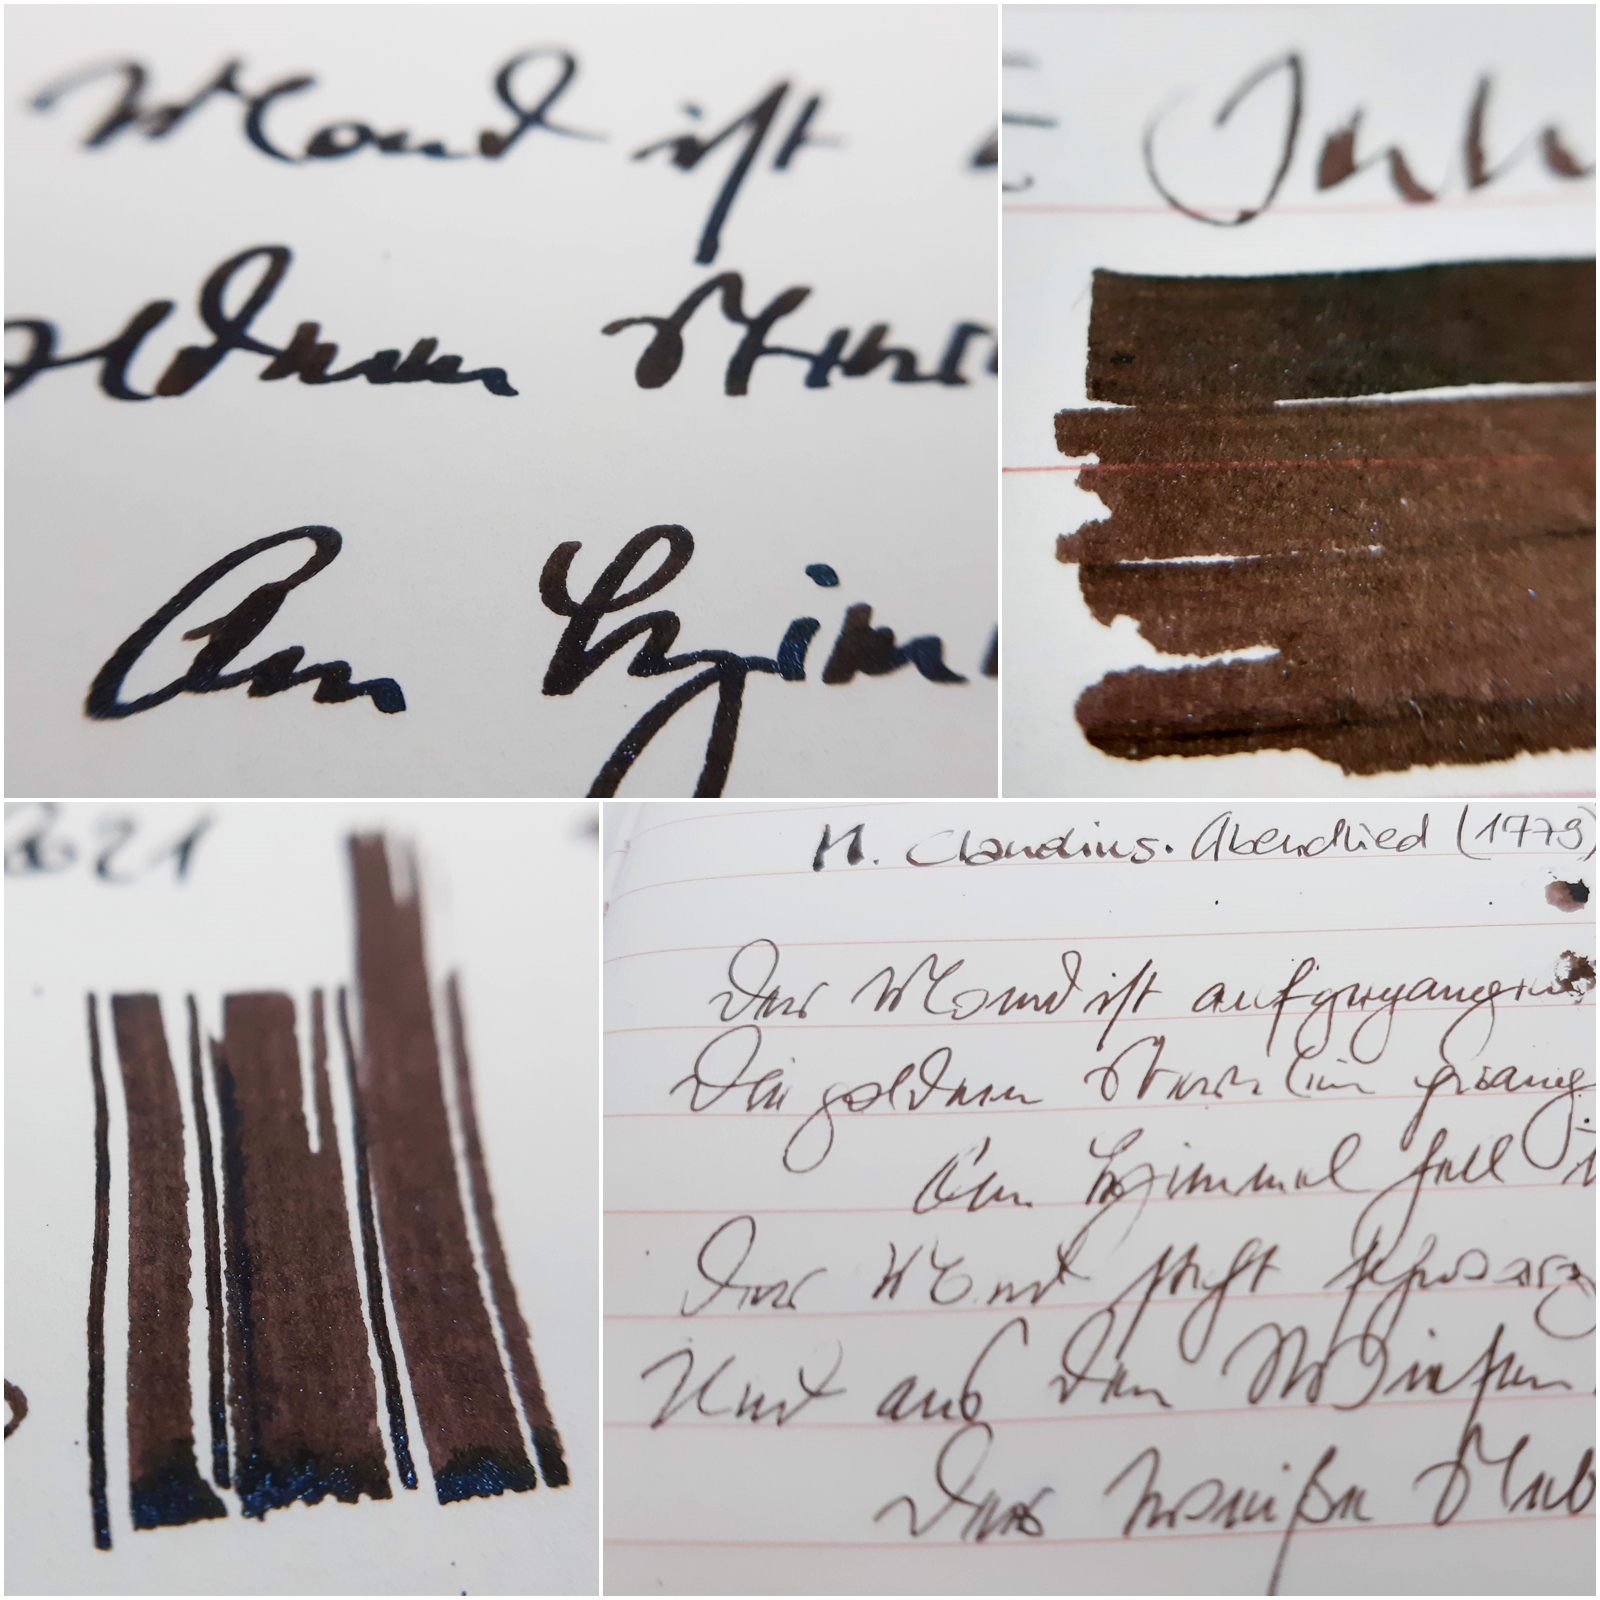 Mond ist
oldnen Stern
Am Him
021
M. Claudius. Abendlied (1779)
Der Mond ist aufgegangen
Die goldnen Sternlein prang
Am Himmel hell
Der Wald steht schwarz
Und aus den Wiesen
Der weiße Neb